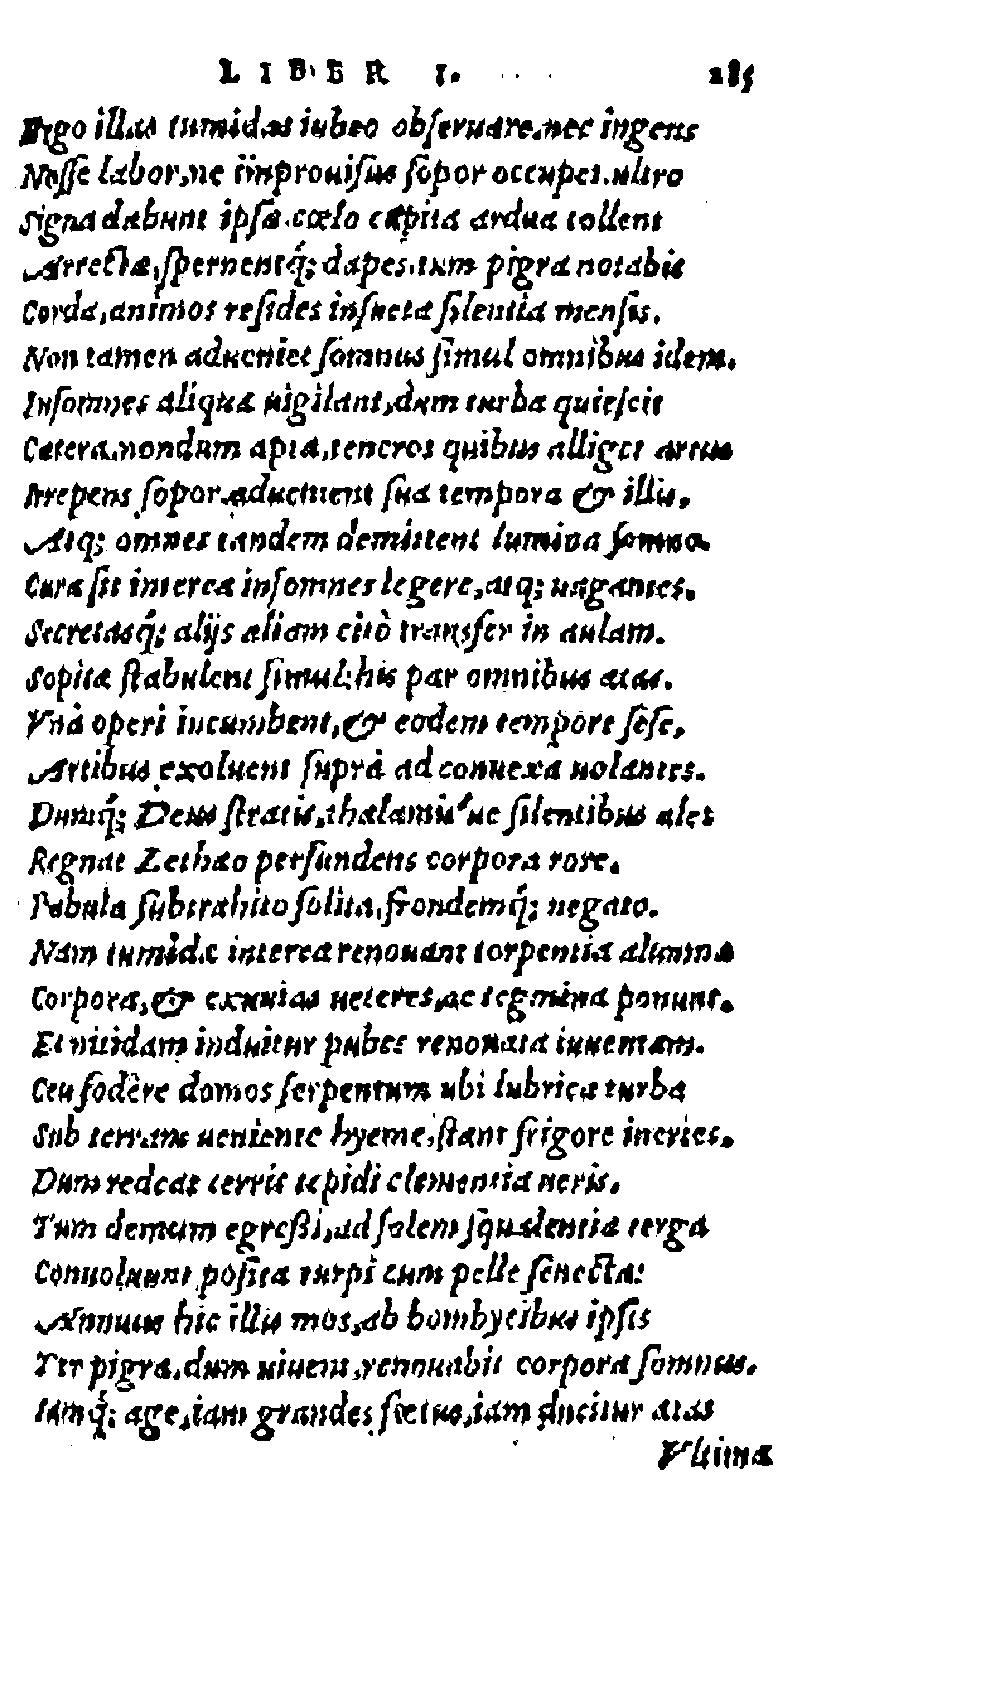 LIBER I. 285
Ergo illas tumidas iubeo obseruare, nec ingens
Nosse labor, ne improuisus sopor occupet. ultro
Signa dabunt ipsa. cœlo capita ardua tollent
Arrectæ, spernentq́; dapes. tum pigra notabis
Corda, animos resides insueta silentia mensis.
Non tamen adueniet somnus simul omnibus idem.
Insomnes aliqua uigilant, dum turba quiescit
Cætera, nondum apta, teneros quibus alliget artus
Irrepens sopor. aduenient sua tempora & illis.
Atq; omnes tandem demittent lumina somno.
Cura sit interea insomnes legere, atq; uagantes.
Secretasq́; alijs aliam citò transfer in aulam.
Sopitæ stabulent simul: his par omnibus ætas.
Vnà operi incumbent, & eodem tempore sese,
Artibus exoluent suprà ad conuexa uolantes.
Dumq́; Deus stratis, thalamis'ue silentibus ales
Regnat Lethæo perfundens corpora rore.
Pabula subtrahito solita, frondemq́; negato.
Nam tumidæ interea renouant torpentia alumnæ
Corpora, & exuuias ueteres, ac tegmina ponunt.
Et nitidam induitur pubes renouata iuuentam.
Ceu fodêre domos serpentum ubi lubrica turba
Sub terram ueniente hyeme, stant frigore inertes.
Dum redeat terris tepidi clementia ueris.
Tum demum egreßi, ad solem squalentia terga
Conuoluunt posita turpi cum pelle senecta:
Annuus hic illis mos, ab bombycibus ipsis
Ter pigra, dum uiuent, renouabit corpora somnus.
Iamq́; age, iam grandes fœtus, iam ducitur ætas
Vltima